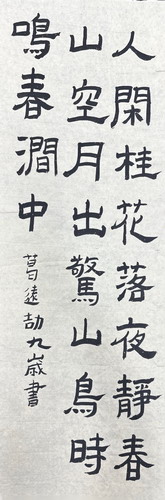 人閑桂花落夜靜春
山空月出驚山鳥時
鳴春澗中
葛遠劼九歲書